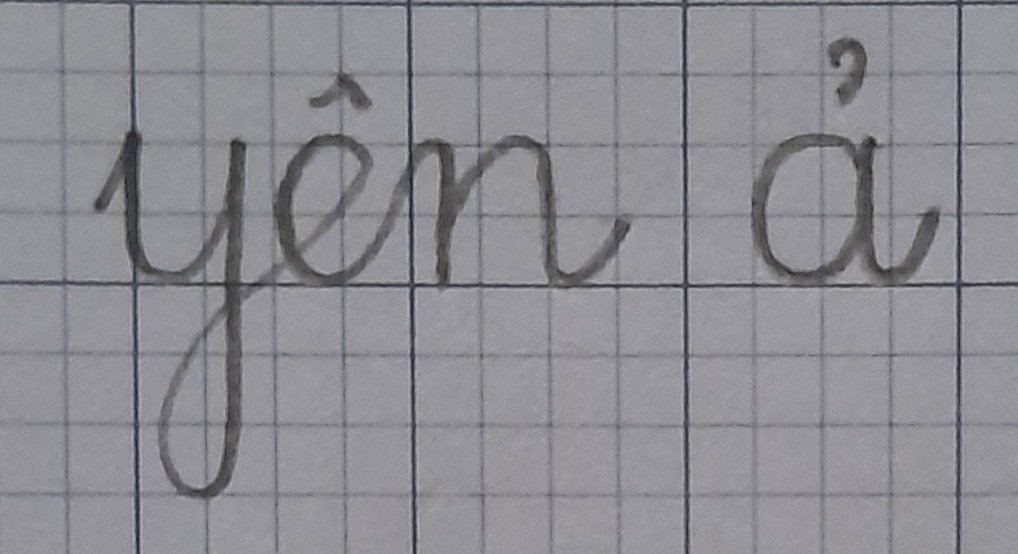 yên ả